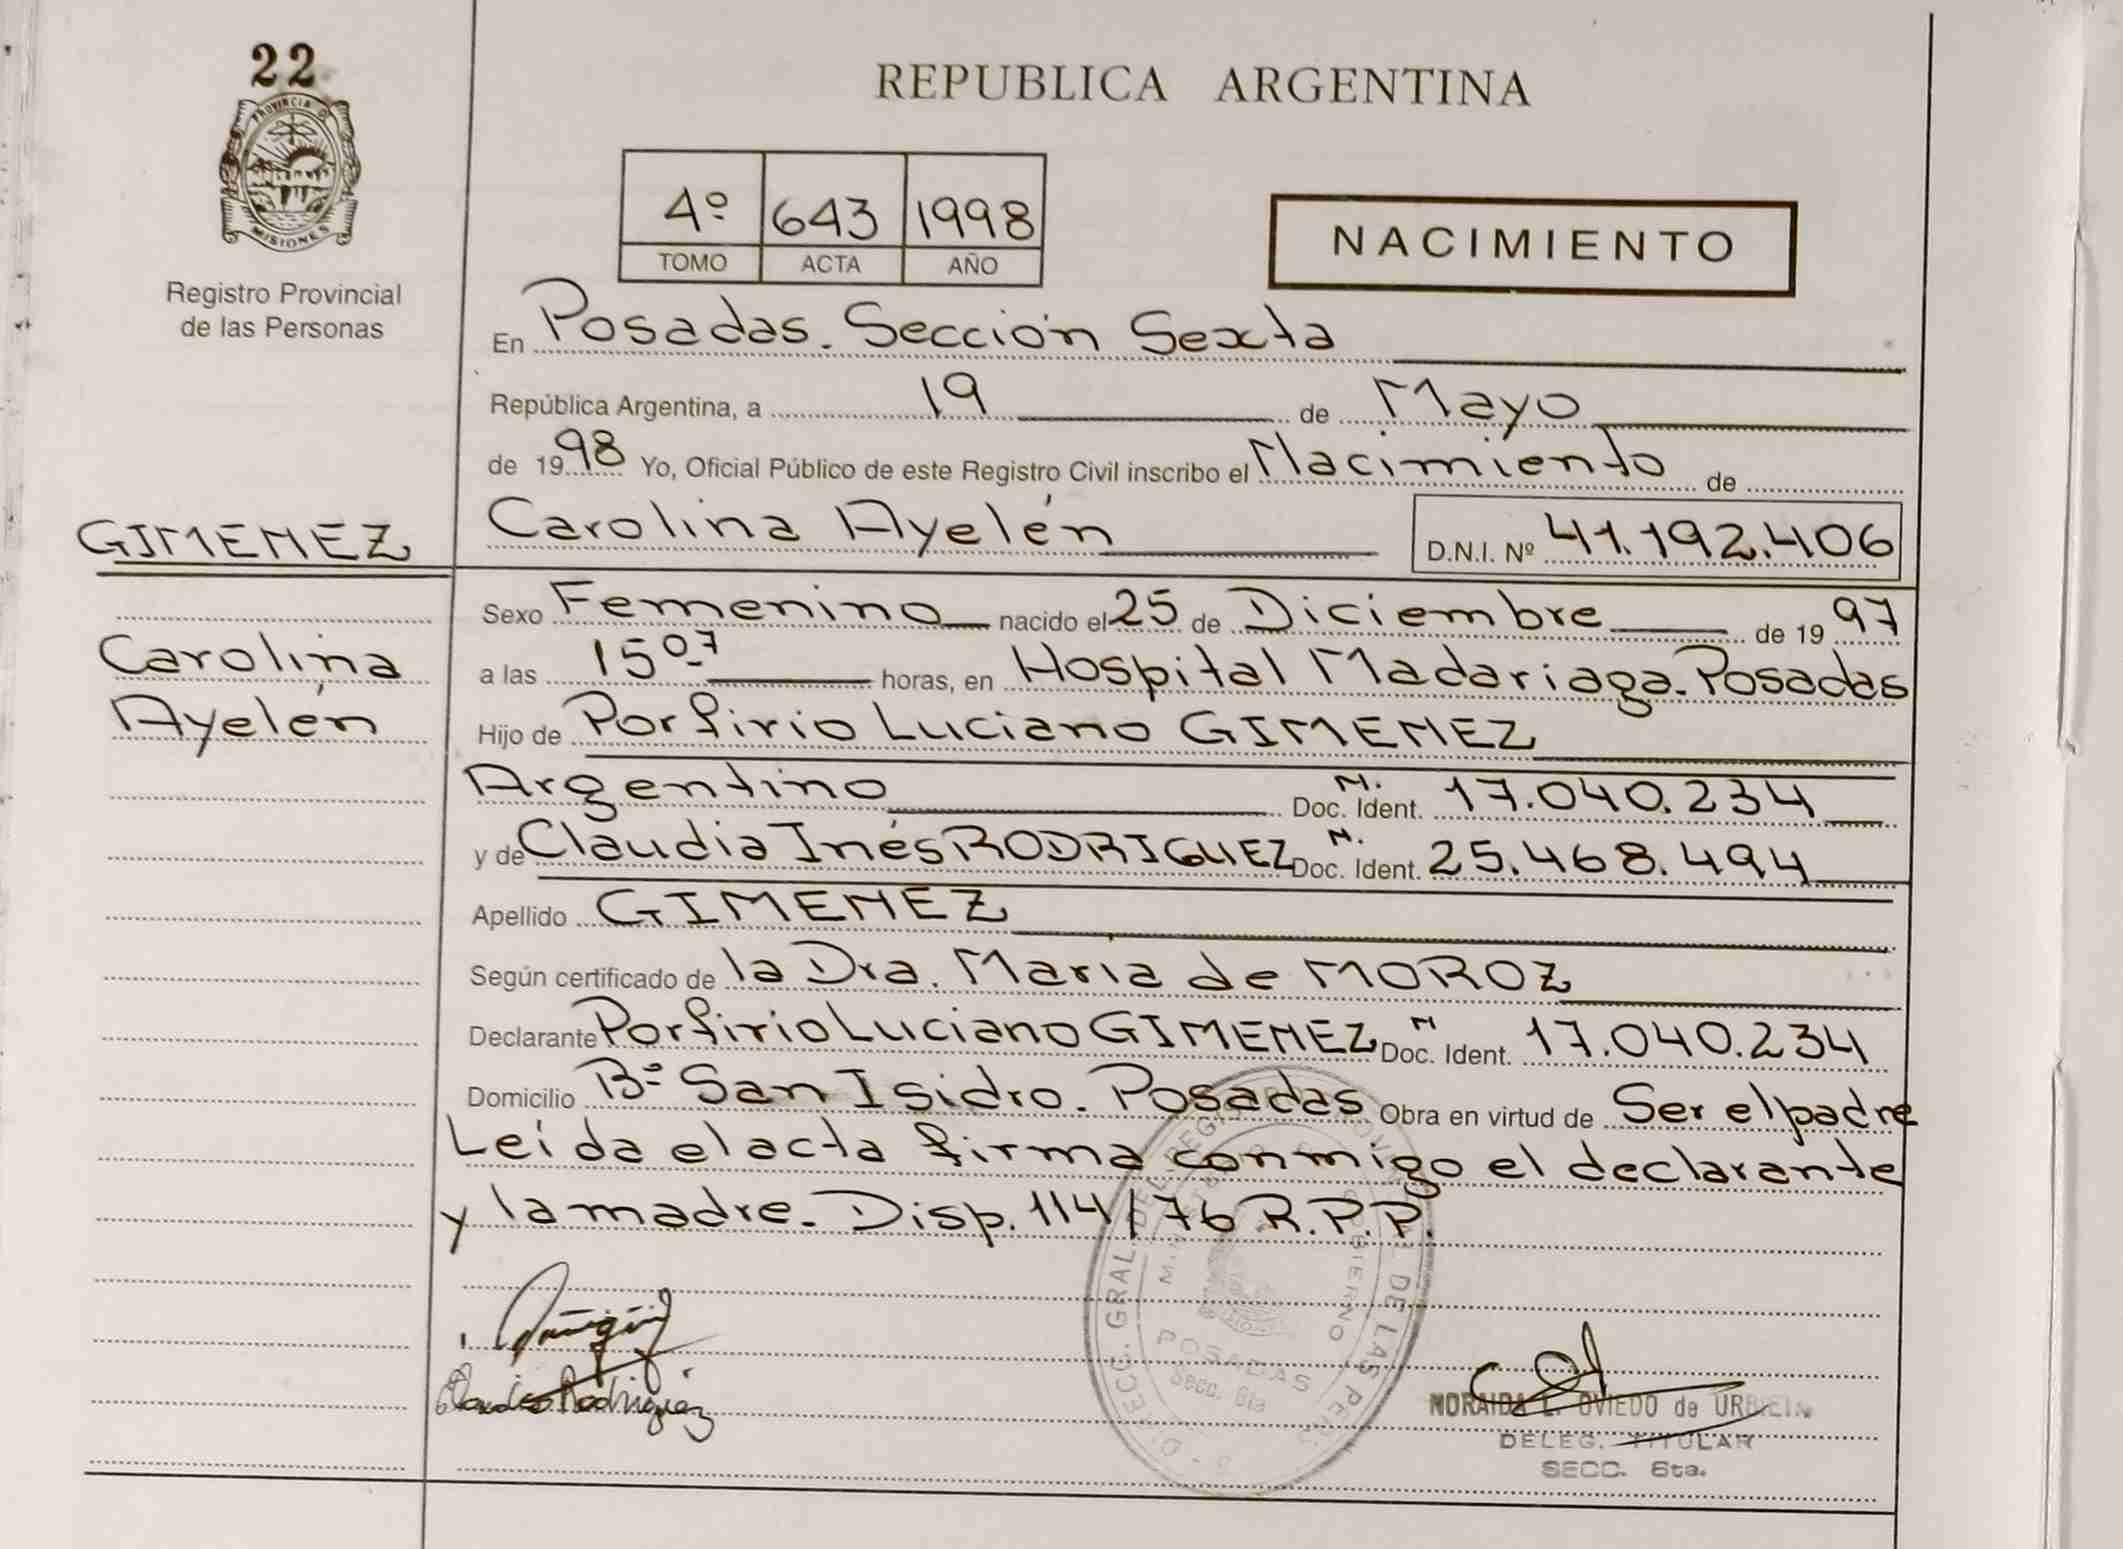 22
PROVINCIA
MISIONES
Registro Provincial
de las Personas
REPUBLICA ARGENTINA
4º 643 1998
TOMO ACTA AÑO
NACIMIENTO
En Posadas. Sección Sexta
República Argentina, a 19 de Mayo
de 1998 Yo, Oficial Público de este Registro Civil inscribo el Nacimiento de
GIMENEZ Carolina Ayelén D.N.I. Nº 41.192.406
Sexo Femenino nacido el 25 de Diciembre de 1997
Carolina
Ayelén
a las 15º7 horas, en Hospital Madariaga. Posadas
Hijo de Porfirio Luciano GIMENEZ
Argentino Doc. Ident. M. 17.040.234
y de Claudia Inés RODRIGUEZ Doc. Ident. M. 25.468.494
Apellido GIMENEZ
Según certificado de la Dra. María de MOROZ
Declarante Porfirio Luciano GIMENEZ Doc. Ident. M 17.040.234
Domicilio Bº San Isidro. Posadas Obra en virtud de Ser el padre
Leída el acta firma conmigo el declarante
y la madre. Disp. 114/76 R.P.P.
DIRECC. GRAL. DEL REG. DE LAS PERS
GOBIERNO
POSADAS
Secc. 6ta
Claudia Rodriguez
NORAIDA L. OVIEDO de
DELEG. TITULAR
SECC. 6ta.